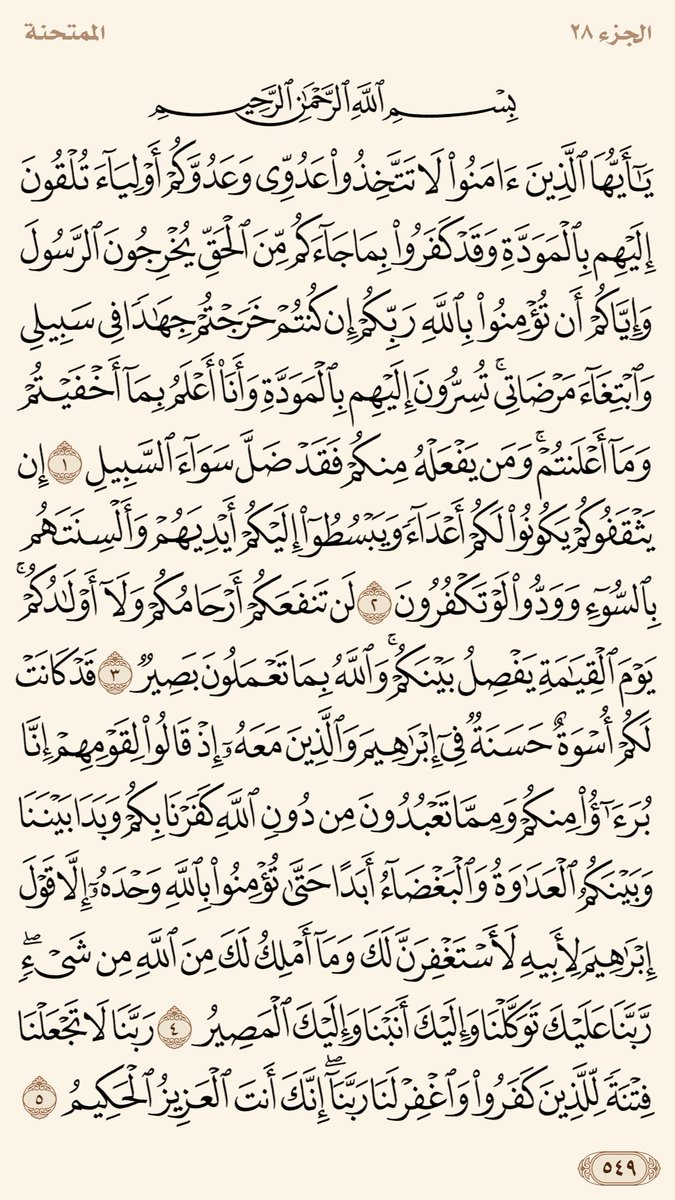 الجزء ٢٨ الممتحنة
بِسْمِ ٱللَّهِ ٱلرَّحْمَٰنِ ٱلرَّحِيمِ
يَٰٓأَيُّهَا ٱلَّذِينَ ءَامَنُوا۟ لَا تَتَّخِذُوا۟ عَدُوِّى وَعَدُوَّكُمْ أَوْلِيَآءَ تُلْقُونَ
إِلَيْهِم بِٱلْمَوَدَّةِ وَقَدْ كَفَرُوا۟ بِمَا جَآءَكُم مِّنَ ٱلْحَقِّ يُخْرِجُونَ ٱلرَّسُولَ
وَإِيَّاكُمْ أَن تُؤْمِنُوا۟ بِٱللَّهِ رَبِّكُمْ إِن كُنتُمْ خَرَجْتُمْ جِهَٰدًا فِى سَبِيلِى
وَٱبْتِغَآءَ مَرْضَاتِى ۚ تُسِرُّونَ إِلَيْهِم بِٱلْمَوَدَّةِ وَأَنَا۠ أَعْلَمُ بِمَآ أَخْفَيْتُمْ
وَمَآ أَعْلَنتُمْ ۚ وَمَن يَفْعَلْهُ مِنكُمْ فَقَدْ ضَلَّ سَوَآءَ ٱلسَّبِيلِ ١ إِن
يَثْقَفُوكُمْ يَكُونُوا۟ لَكُمْ أَعْدَآءً وَيَبْسُطُوٓا۟ إِلَيْكُمْ أَيْدِيَهُمْ وَأَلْسِنَتَهُم
بِٱلسُّوٓءِ وَوَدُّوا۟ لَوْ تَكْفُرُونَ ٢ لَن تَنفَعَكُمْ أَرْحَامُكُمْ وَلَآ أَوْلَٰدُكُمْ ۚ
يَوْمَ ٱلْقِيَٰمَةِ يَفْصِلُ بَيْنَكُمْ ۚ وَٱللَّهُ بِمَا تَعْمَلُونَ بَصِيرٌ ٣ قَدْ كَانَتْ
لَكُمْ أُسْوَةٌ حَسَنَةٌ فِىٓ إِبْرَٰهِيمَ وَٱلَّذِينَ مَعَهُۥٓ إِذْ قَالُوا۟ لِقَوْمِهِمْ إِنَّا
بُرَءَٰٓؤُا۟ مِنكُمْ وَمِمَّا تَعْبُدُونَ مِن دُونِ ٱللَّهِ كَفَرْنَا بِكُمْ وَبَدَا بَيْنَنَا
وَبَيْنَكُمُ ٱلْعَدَٰوَةُ وَٱلْبَغْضَآءُ أَبَدًا حَتَّىٰ تُؤْمِنُوا۟ بِٱللَّهِ وَحْدَهُۥٓ إِلَّا قَوْلَ
إِبْرَٰهِيمَ لِأَبِيهِ لَأَسْتَغْفِرَنَّ لَكَ وَمَآ أَمْلِكُ لَكَ مِنَ ٱللَّهِ مِن شَىْءٍ ۖ
رَّبَّنَا عَلَيْكَ تَوَكَّلْنَا وَإِلَيْكَ أَنَبْنَا وَإِلَيْكَ ٱلْمَصِيرُ ٤ رَبَّنَا لَا تَجْعَلْنَا
فِتْنَةً لِّلَّذِينَ كَفَرُوا۟ وَٱغْفِرْ لَنَا رَبَّنَآ ۖ إِنَّكَ أَنتَ ٱلْعَزِيزُ ٱلْحَكِيمُ ٥
٥٤٩